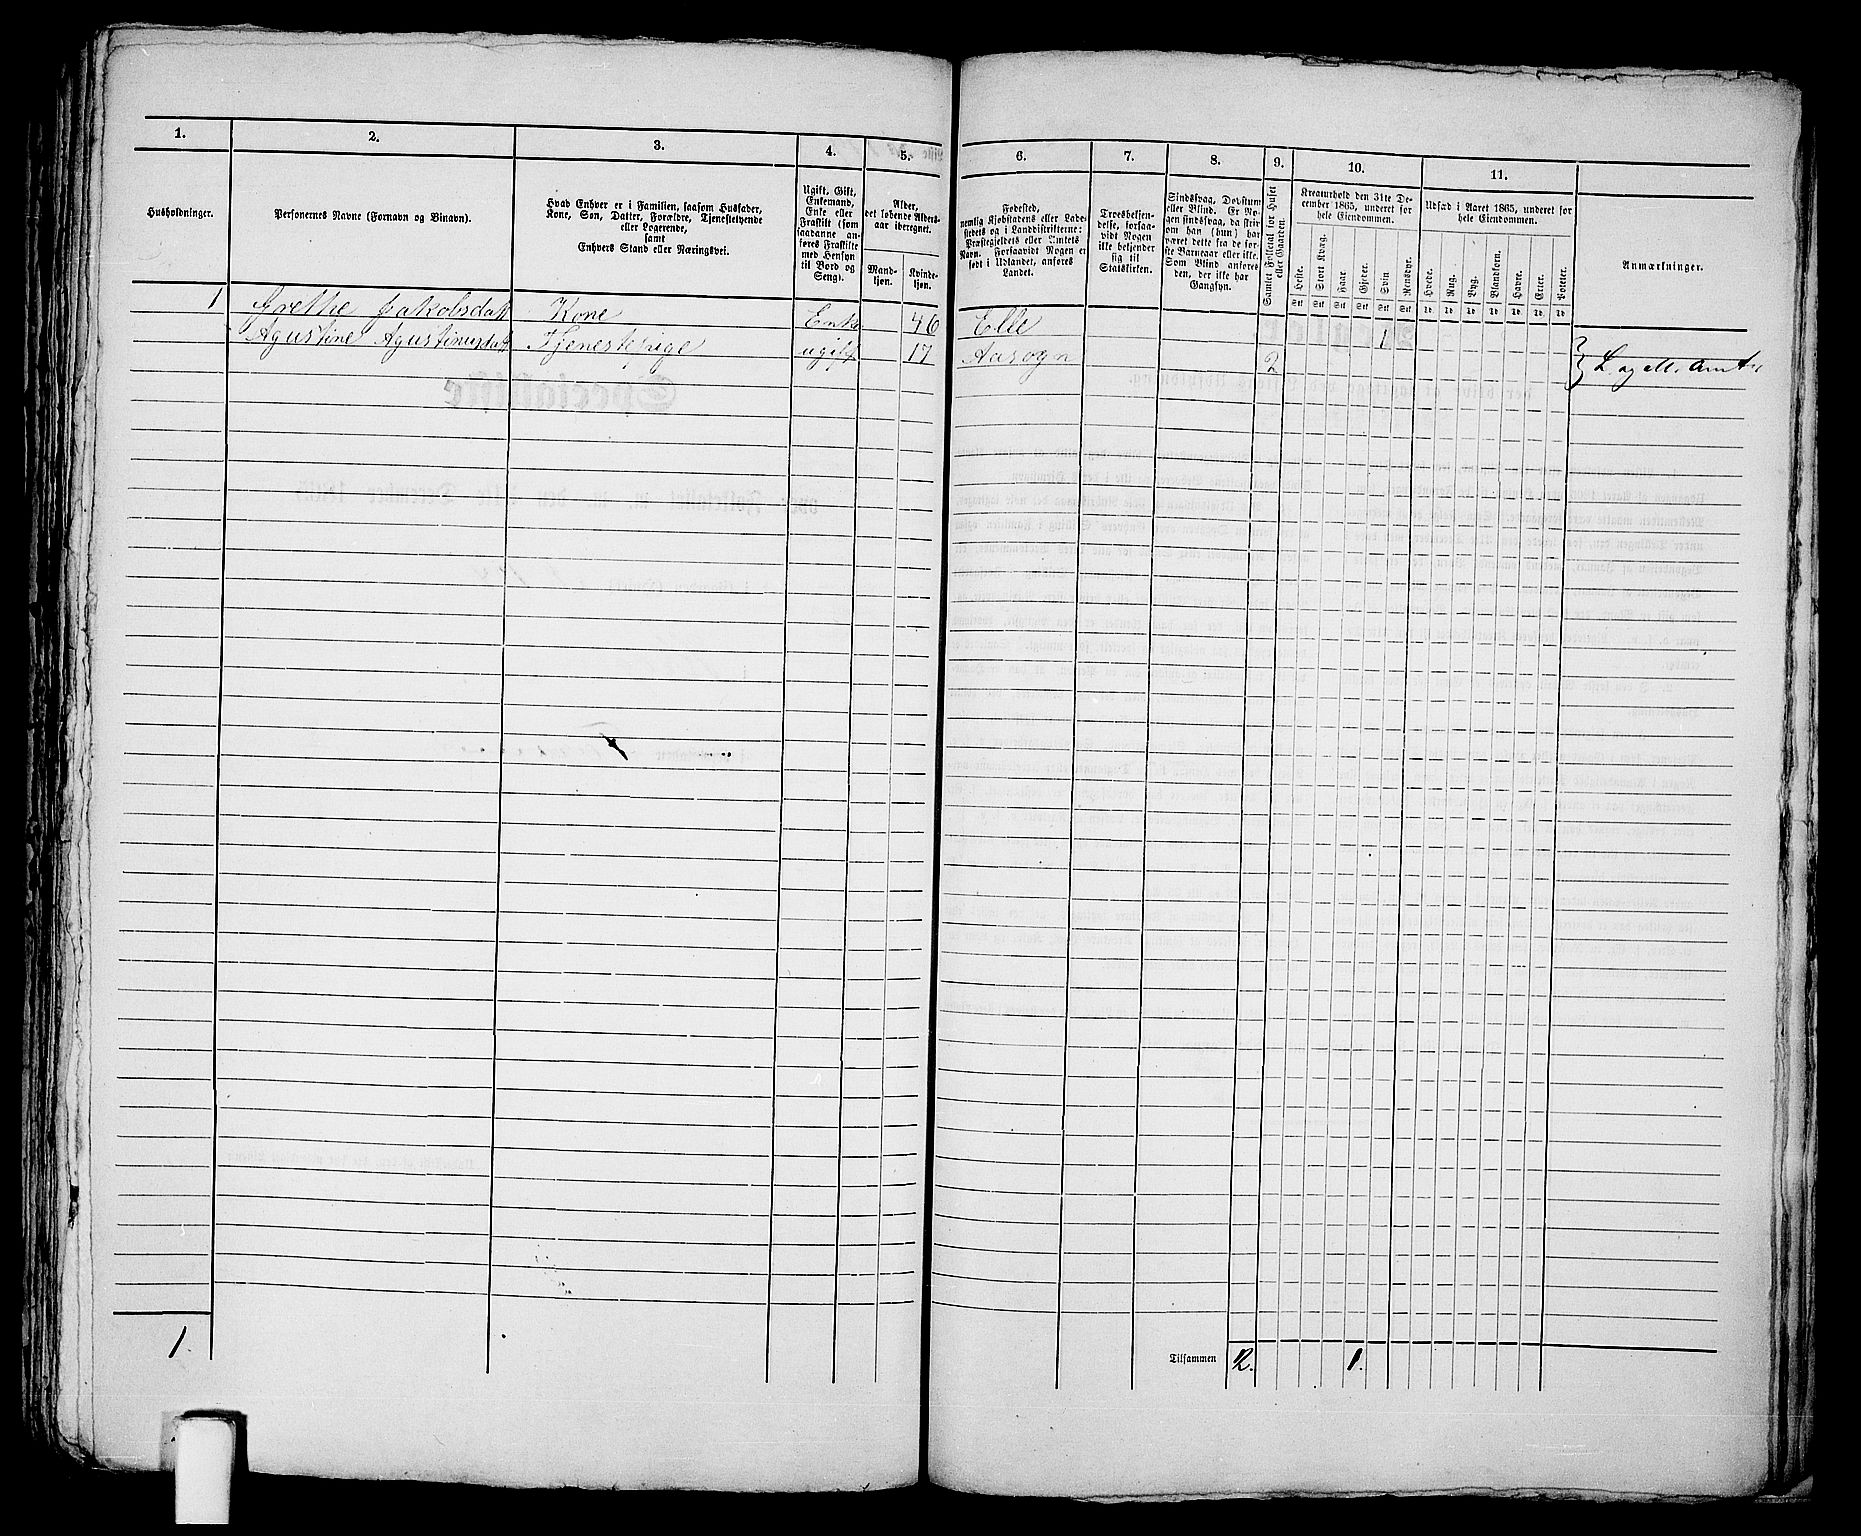 1. 2. 3. 4. 5.
Husholdninger.
Personernes Navne (Fornavn og Binavn).
Hvad Enhver er i Familien, saasom Husfader,
Kone, Søn, Datter, Forældre, Tjenestetyende
eller Logerende,
samt
Enhvers Stand eller Næringsvei.
Ugift, Gift,
Enkemand,
Enke eller
Fraskilt (som
saadanne an-
føres Fraskilte
med Hensyn
til Bord og
Seng).
Alder,
det løbende Alders-
aar iberegnet.
Mand-
kjøn.
Kvinde-
kjøn.
1 Grethe Jakobsdatt Kone Enke 46
Agustine Agustinusdatt Tjenestepige ugift 17
1.
6. 7. 8. 9. 10. 11.
Fødested,
nemlig Kjøbstadens eller Lade-
stedets og i Landdistrikterne:
Præstegjeldets eller Amtets
Navn. Forsaavidt Nogen er
født i Udlandet, anføres
Landet.
Troesbekjen-
delse, forsaa-
vidt Nogen
ikke bekjender
sig til
Statskirken.
Sindssvag, Døvstum
eller Blind. Er No-
gen sindssvag, da skri-
ves om han (hun) har
været dette fra de før-
ste Barneaar eller ikke.
Som Blind anføres
den, der ikke har
Gangsyn.
Samlet Folketal for Huset
eller Gaarden.
Kreaturhold den 31te De-
cember 1865, underet for
hele Eiendommen.
Heste. Stort Kvæg. Faar. Gjeder. Svin. Rensdyr.
Stk Stk Stk Stk Stk Stk
Udsæd i Aaret 1865, underet for
hele Eiendommen.
Hvede. Rug. Byg. Blandkorn. Havre. Erter. Poteter.
Td. Td. Td. Td. Td. Td. Td.
Anmærkninger.
Elle 1
Aasogn 2
Tilsammen 2. 1.